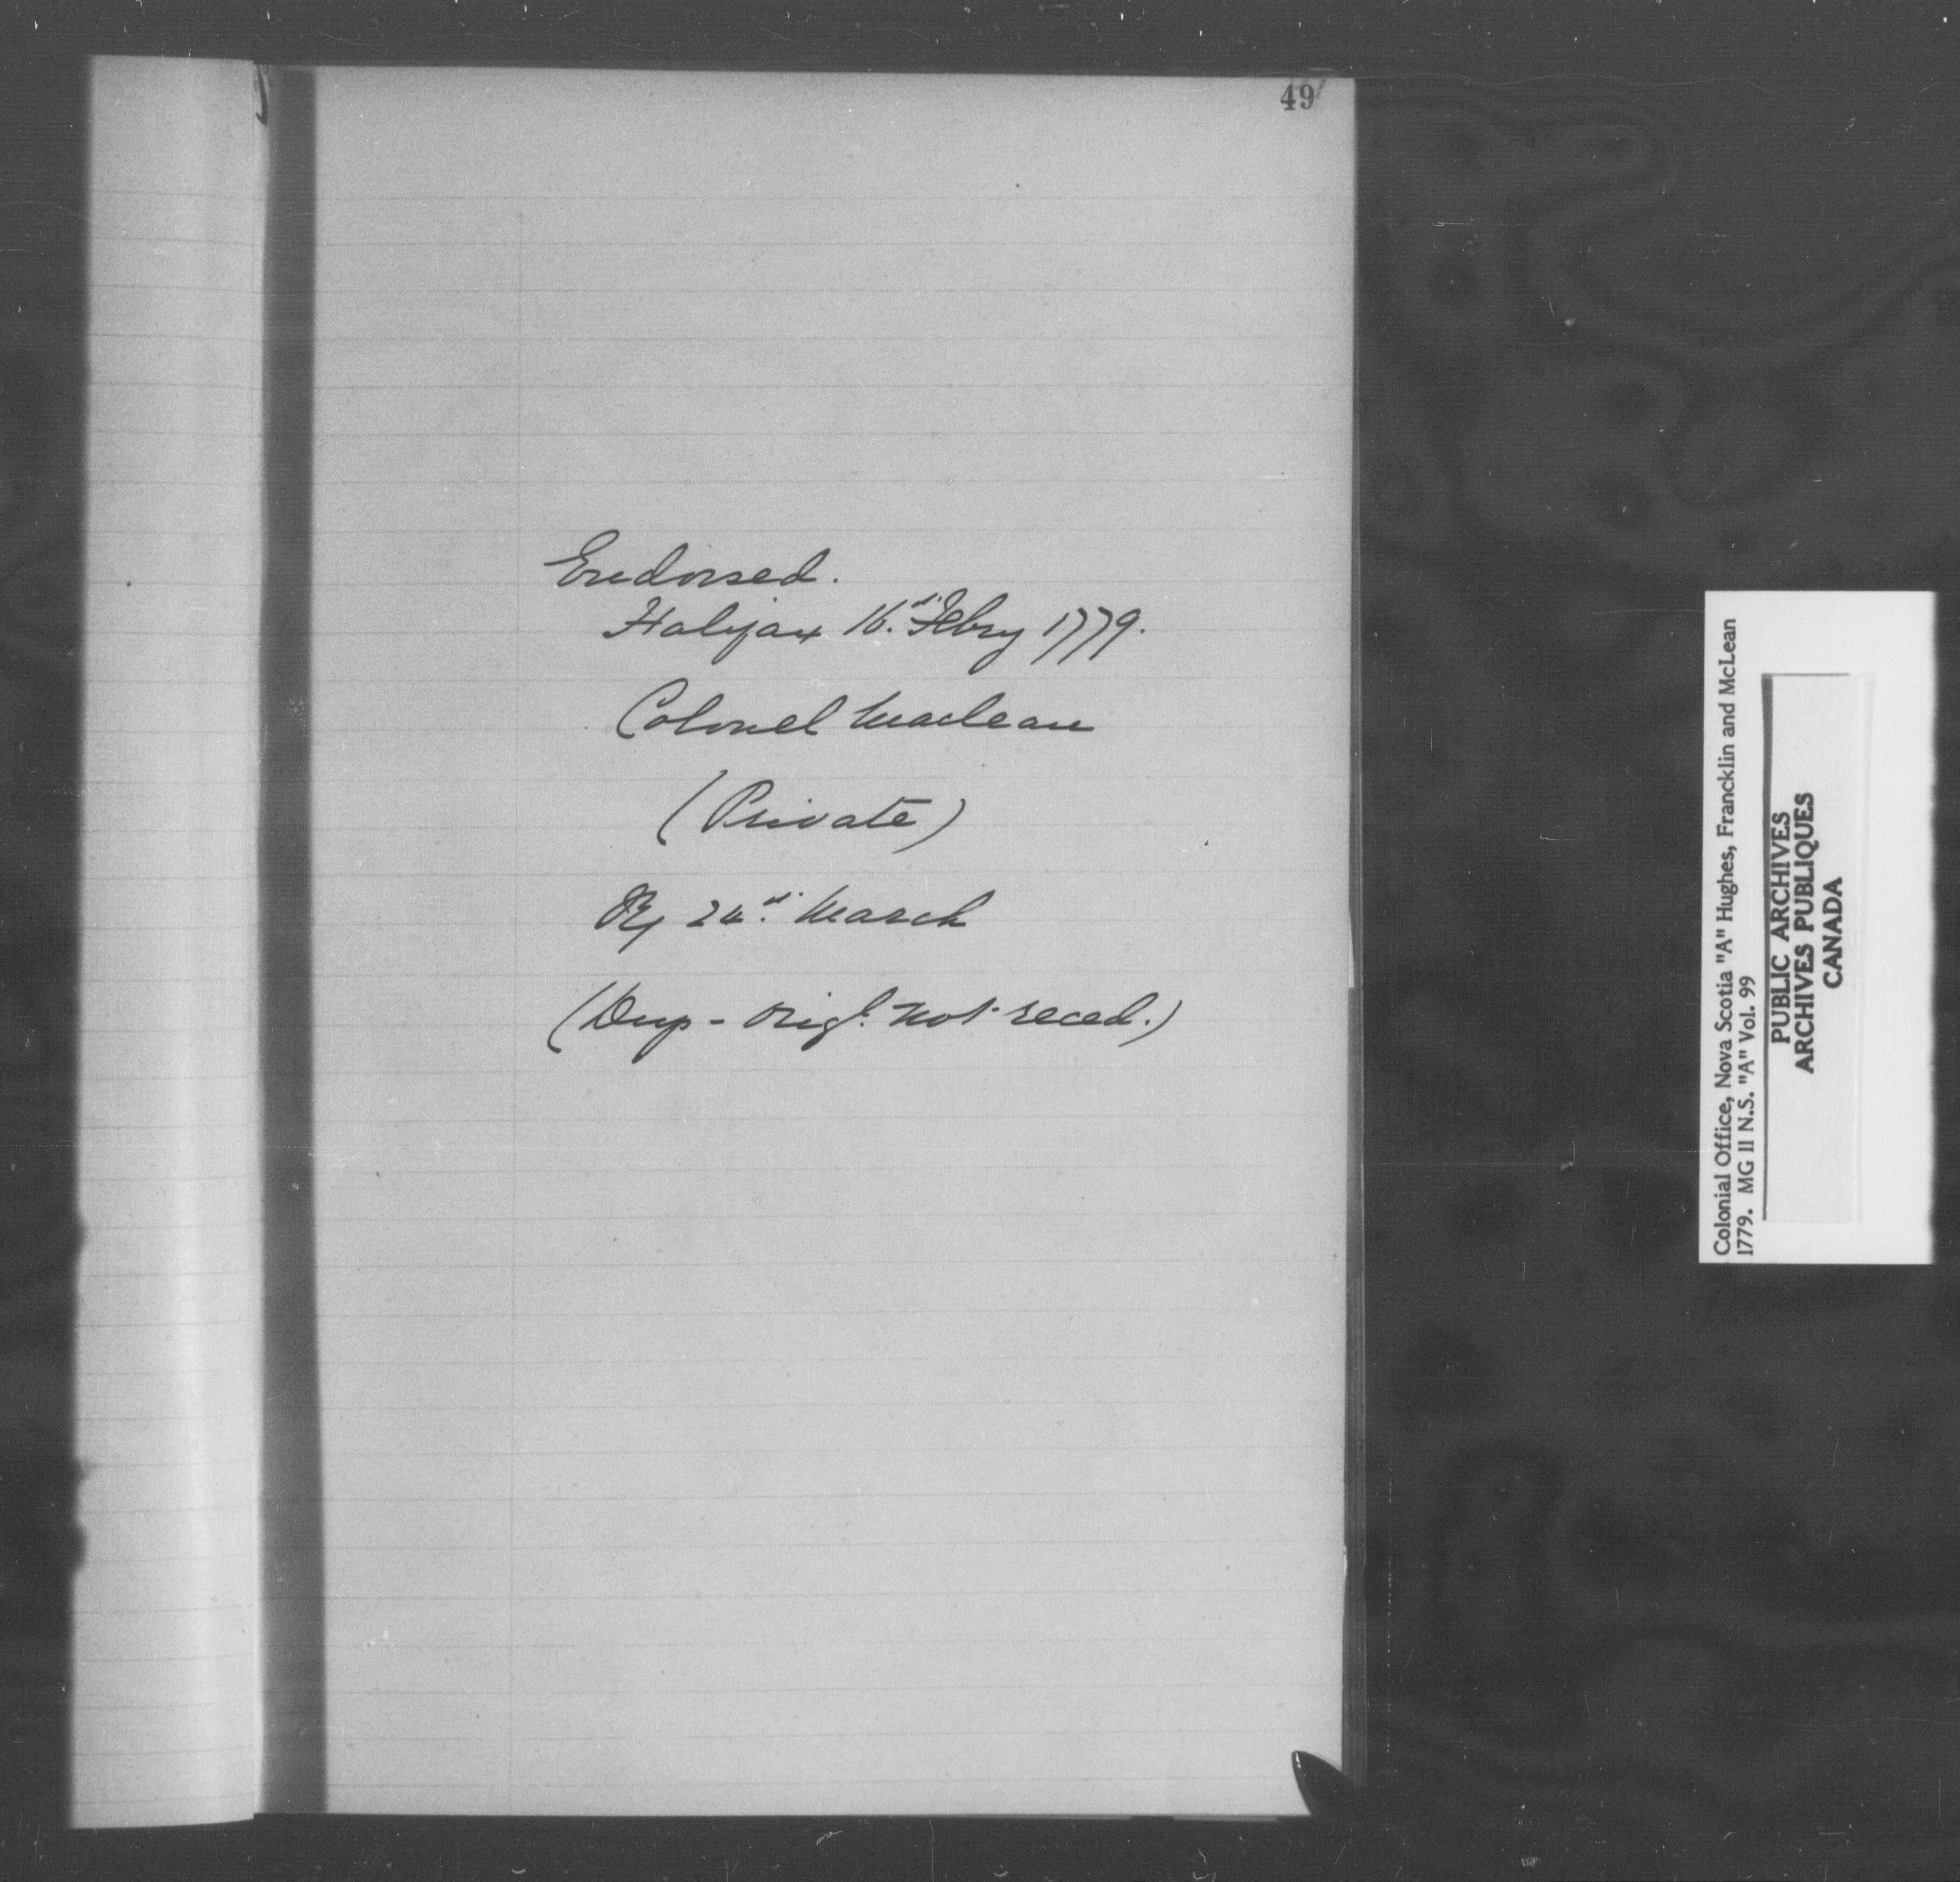 49
Endorsed.
Halifax 16.th Febry 1779.
Colonel Maclean
(Private)
R/ 24th. March
(Dup - Origl. not reced.)
Colonial Office, Nova Scotia "A" Hughes, Francklin and McLean
1779. MG 11 N.S. "A" Vol. 99
PUBLIC ARCHIVES
ARCHIVES PUBLIQUES
CANADA